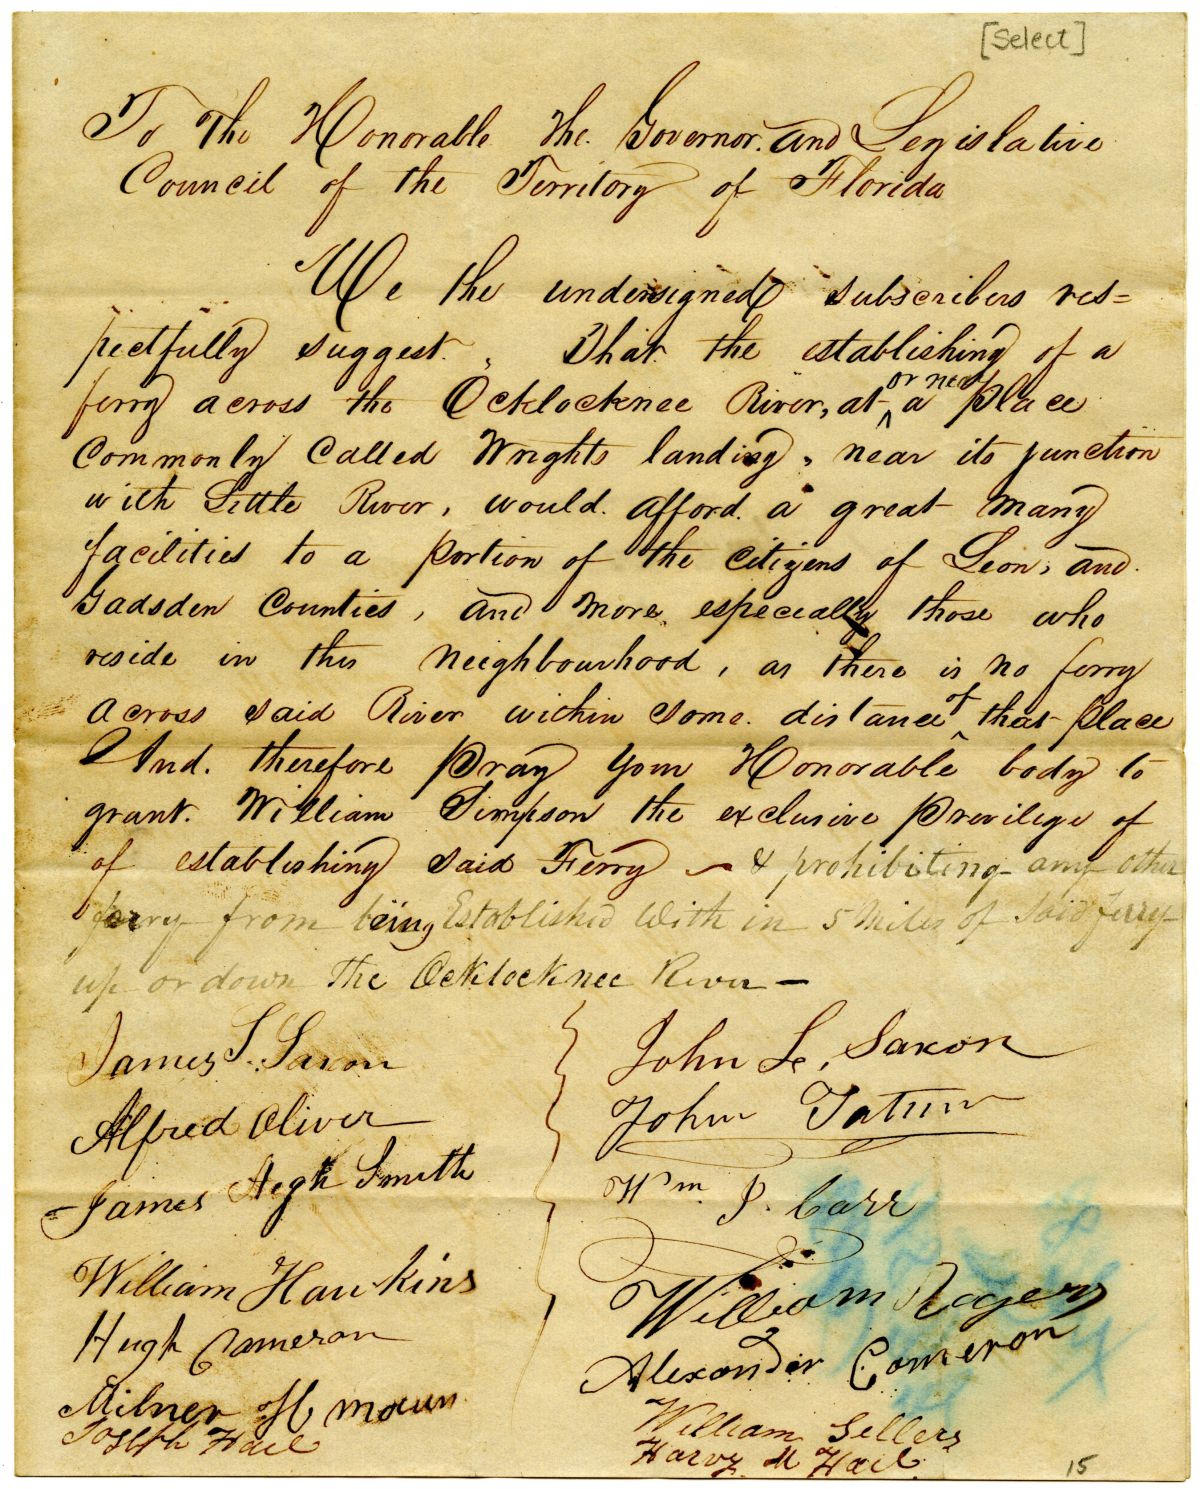 [Select]
To The Honorable the Governor. and Legislative
Council of the Territory of Florida
We the undersigned subscribers res=
pectfully suggest. That the establishing of a
ferry across the Ocklocknee River, at or near a place
commonly called Wrights landing, near its junction
with Little River, would afford a great many
facilities to a portion of the citizens of Leon, and
Gadsden Counties, and more especially those who
reside in this neighbourhood, as there is no ferry
across said River within some distance of that place
And. therefore pray your Honorable body to
grant. William Simpson the exclusive privilege of
of establishing said Ferry — & prohibiting any other
ferry from being Established With in 5 Miles of said ferry
up or down The Ocklocknee River —
James S. Saxon
John L. Saxon
Alfred Oliver
John Tatum
James Smith
Wm. J. Carr
William Hawkins
William Rogers
Hugh Cameron
Alexander Cameron
Milner H
William Sellers
Joseph Hail
Harvy M Hail
15